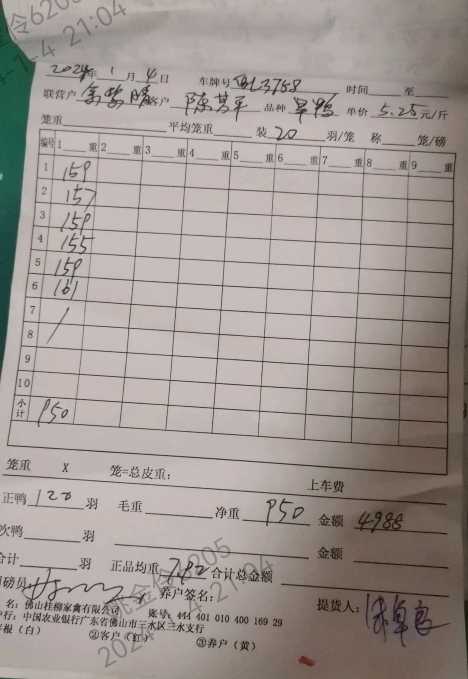 2024年 1月 4日 车牌号 时间 至
联营户 客户 陈其平 品种 单价 5.25元/斤
笼重 平均笼重 装 20 羽/笼 称 笼/磅
编号 1 重 2 重 3 重 4 重 5 重 6 重 7 重 8 重 9 重
1 159
2 157
3 159
4 155
5 159
6 161
7
8
9
10
小计 950
笼重 X 笼=总皮重: 上车费
正鸭 120 羽 毛重 净重 950 金额 4988
次鸭 羽 金额
合计 羽 正品均重 7.92 合计总金额
司磅员 养户签名: 提货人:
名: 佛山桂柳家禽有限公司 账号: 444 401 010 400 169 29
行: 中国农业银行广东省佛山市三水区三水支行
存根(白) ②客户(红) ③养户(黄)